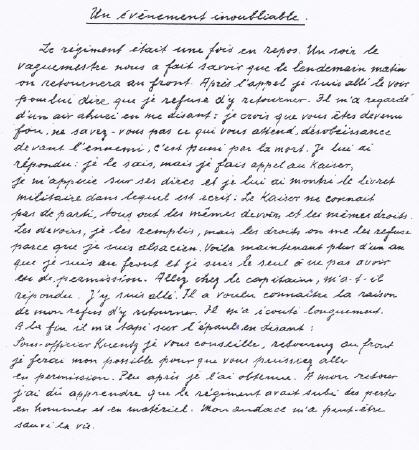 Un évènement inoubliable.
Le régiment était une fois en repos. Un soir le
vaguemestre nous a fait savoir que le lendemain matin
on retournera au front. Après l'appel je suis allé le voir
pour lui dire que je refuse d'y retourner. Il m'a regardé
d'un air ahuri en me disant: je crois que vous êtes devenu
fou, ne savez-vous pas ce qui vous attend, désobéissance
devant l'ennemi, c'est puni par la mort. Je lui ai
répondu: je le sais, mais je fais appel au Kaiser,
je m'appuie sur ses dires et je lui ai montré le livret
militaire dans lequel est écrit: Le Kaiser ne connait
pas de parti, tous ont les mêmes devoirs et les mêmes droits.
Les devoirs, je les remplis, mais les droits on me les refuse
parce que je suis alsacien. Voila maintenant plus d'un an
que je suis au front et je suis le seul à ne pas avoir
eu de permission. Allez chez le capitaine, m'a-t-il
répondu. J'y suis allé. Il a voulu connaître la raison
de mon refus d'y retourner. Il m'a écouté longuement.
A la fin il m'a tapé sur l'épaule en disant:
Sous-officier Kuentz je vous conseille, retournez au front
je ferai mon possible pour que vous puissiez aller
en permission. Peu après je l'ai obtenue. A mon retour
j'ai dû apprendre que le régiment avait subi des pertes
en hommes et en matériel. Mon audace m'a peut-être
sauvé la vie.